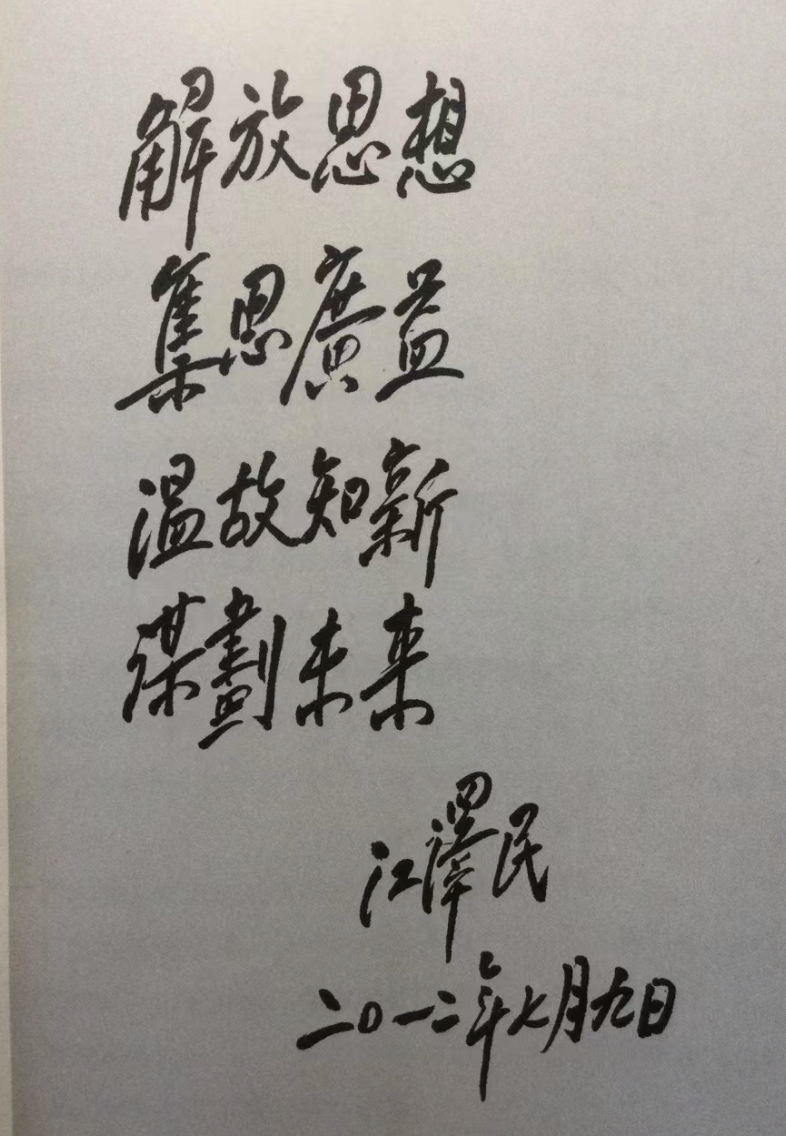 解放思想
集思廣益
温故知新
謀劃未来
江澤民
二〇一二年七月九日